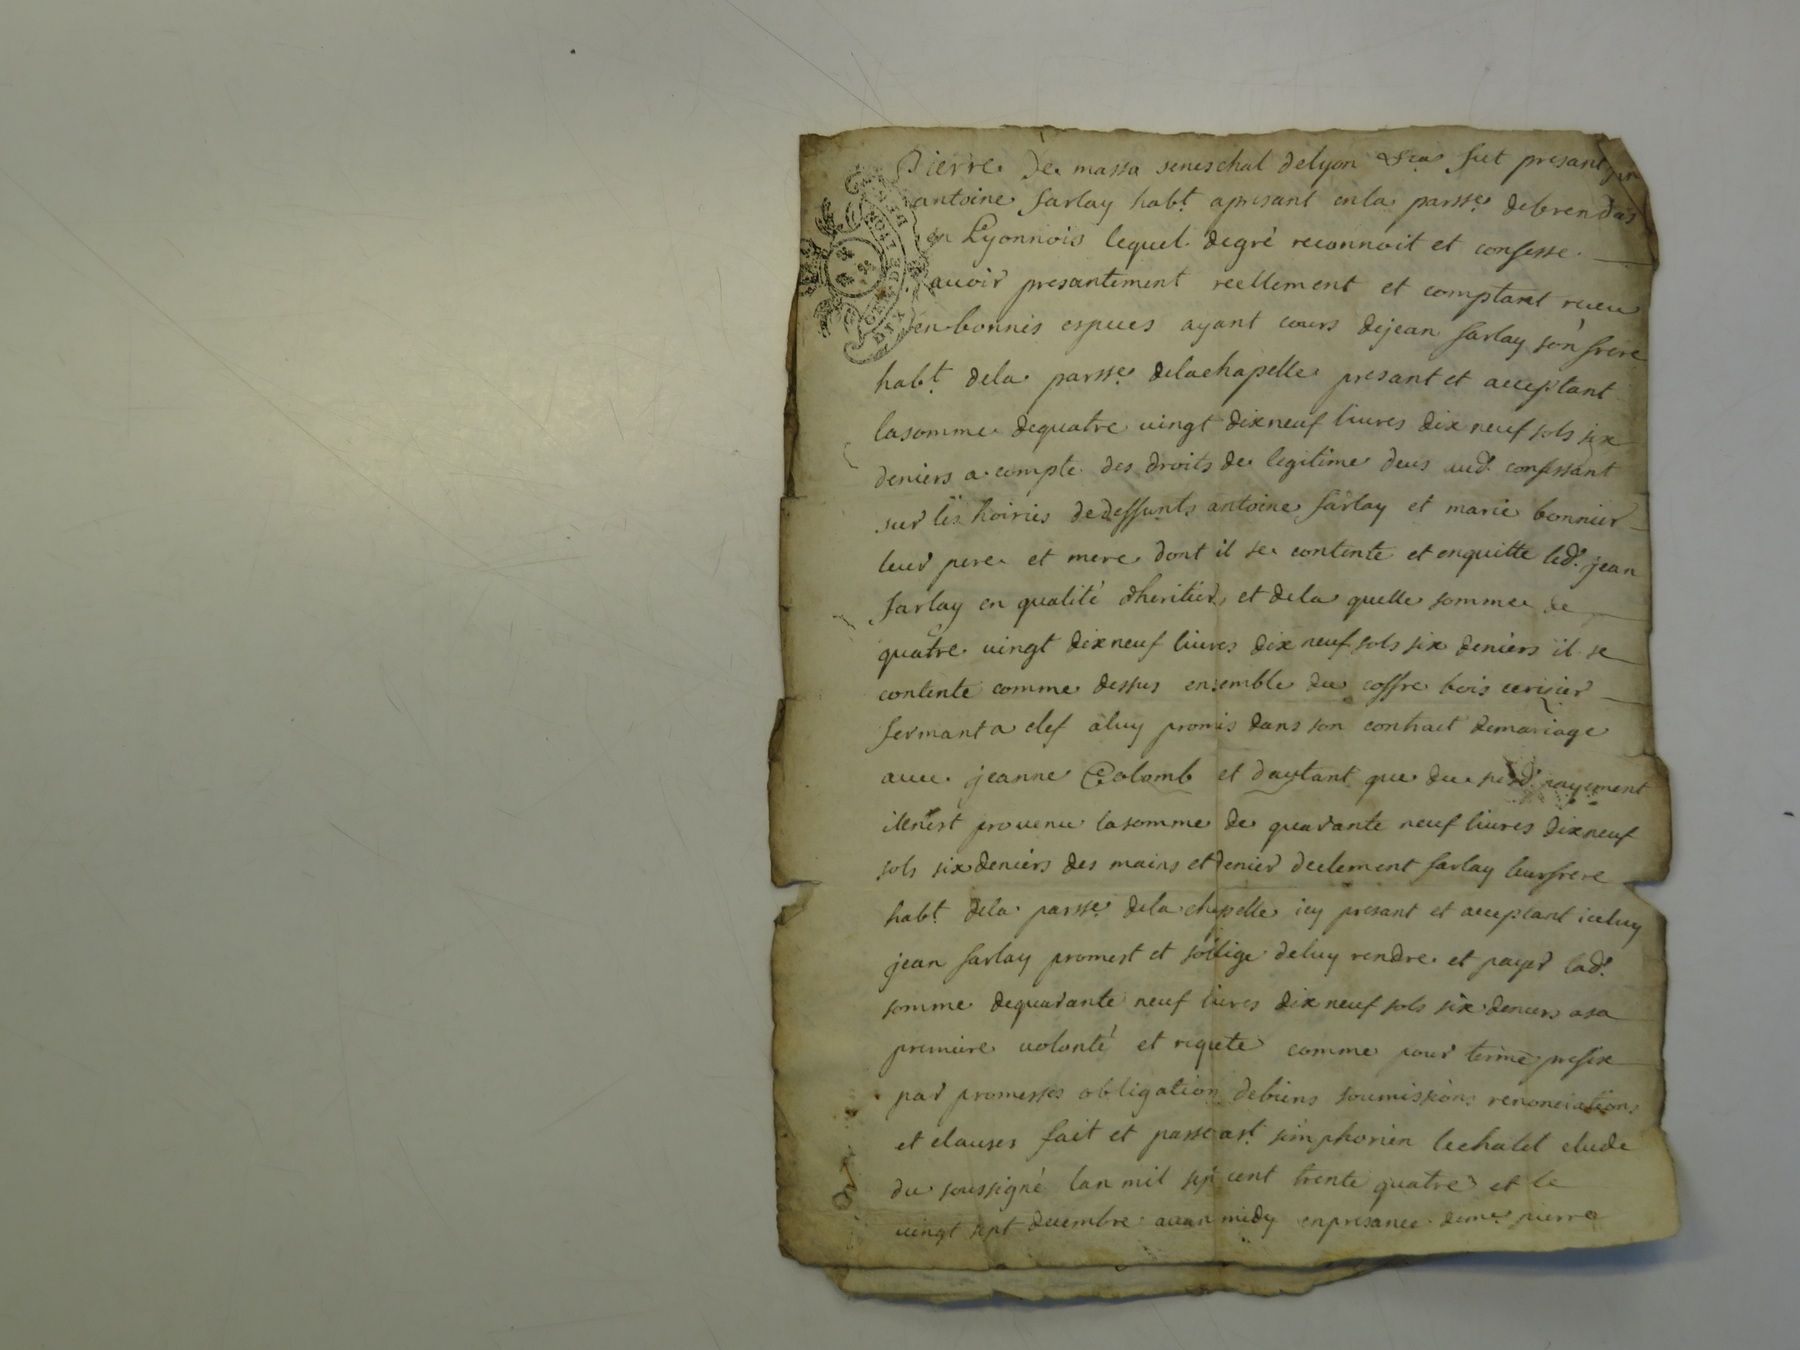 Pierre de massa seneschal delyon &ca fut presant
antoine farlay habt. apresant enla parsse. debrendas
en Lyonnois lequel degré reconnoit et confesse
auoir presantement reellement et comptant receu
en bonnes especes ayant cours dejean farlay son frere
habt. dela parsse. delachapelle presant et acceptant
lasomme dequatre uingt dixneuf liures dix neuf sols six
deniers a compte des droits de legitime deus aud. confessant
sur les hoiries dedeffunts antoine farlay et marie bonnier
leur pere et mere dont il se contente et enquitte led. jean
farlay en qualité dheritier, et dela quelle somme de
quatre uingt dixneuf liures dix neuf sols six deniers il se
contente comme dessus ensemble du coffre bois cerisier
fermant a clef aluy promis dans son contract demariage
auec jeanne Colomb et dautant que du susd. payement
ilenest prouenu lasomme de quarante neuf liures dixneuf
sols six deniers des mains et denier declement farlay leurfrere
habt. dela parsse. dela chapelle icy presant et acceptant iceluy
jean farlay promest et soblige deluy rendre et payer lad.
somme dequarante neuf liures dix neuf sols six deniers asa
premiere uolonté et requete comme pour terme prefix
par promesses obligation debiens soumissions renonciations
et clauses fait et passé a st. simphorien lechatel etude
du soussigné lan mil sept cent trente quatre et le
uingt sept decembre auan midy enpresance deme. pierre